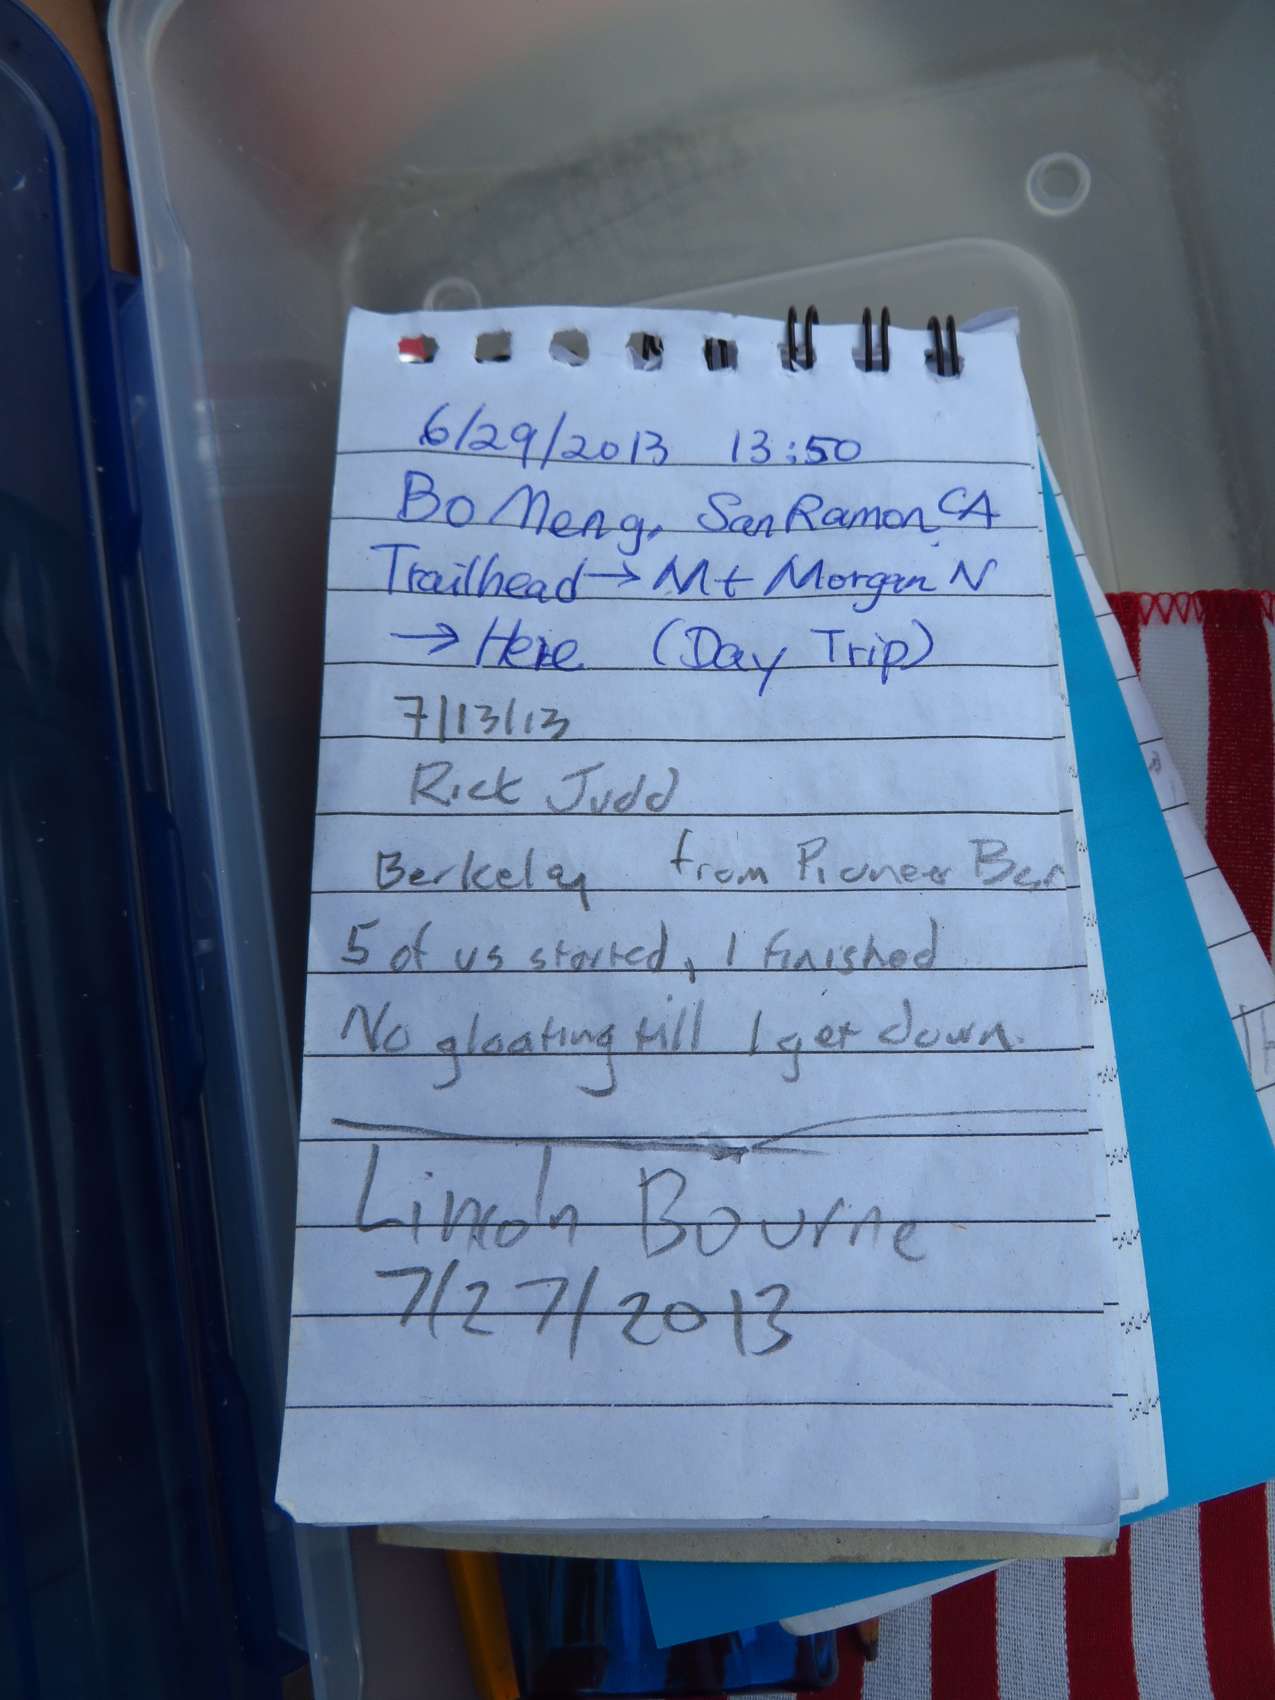 6/29/2013 13:50
Bo Meng, San Ramon CA
Trailhead → Mt Morgan N
→ Here (Day Trip)
7/13/13
Rick Judd
Berkeley from Pioneer Bas
5 of us started, 1 finished
No gloating till I get down.
Lincoln Bourne
7/27/2013